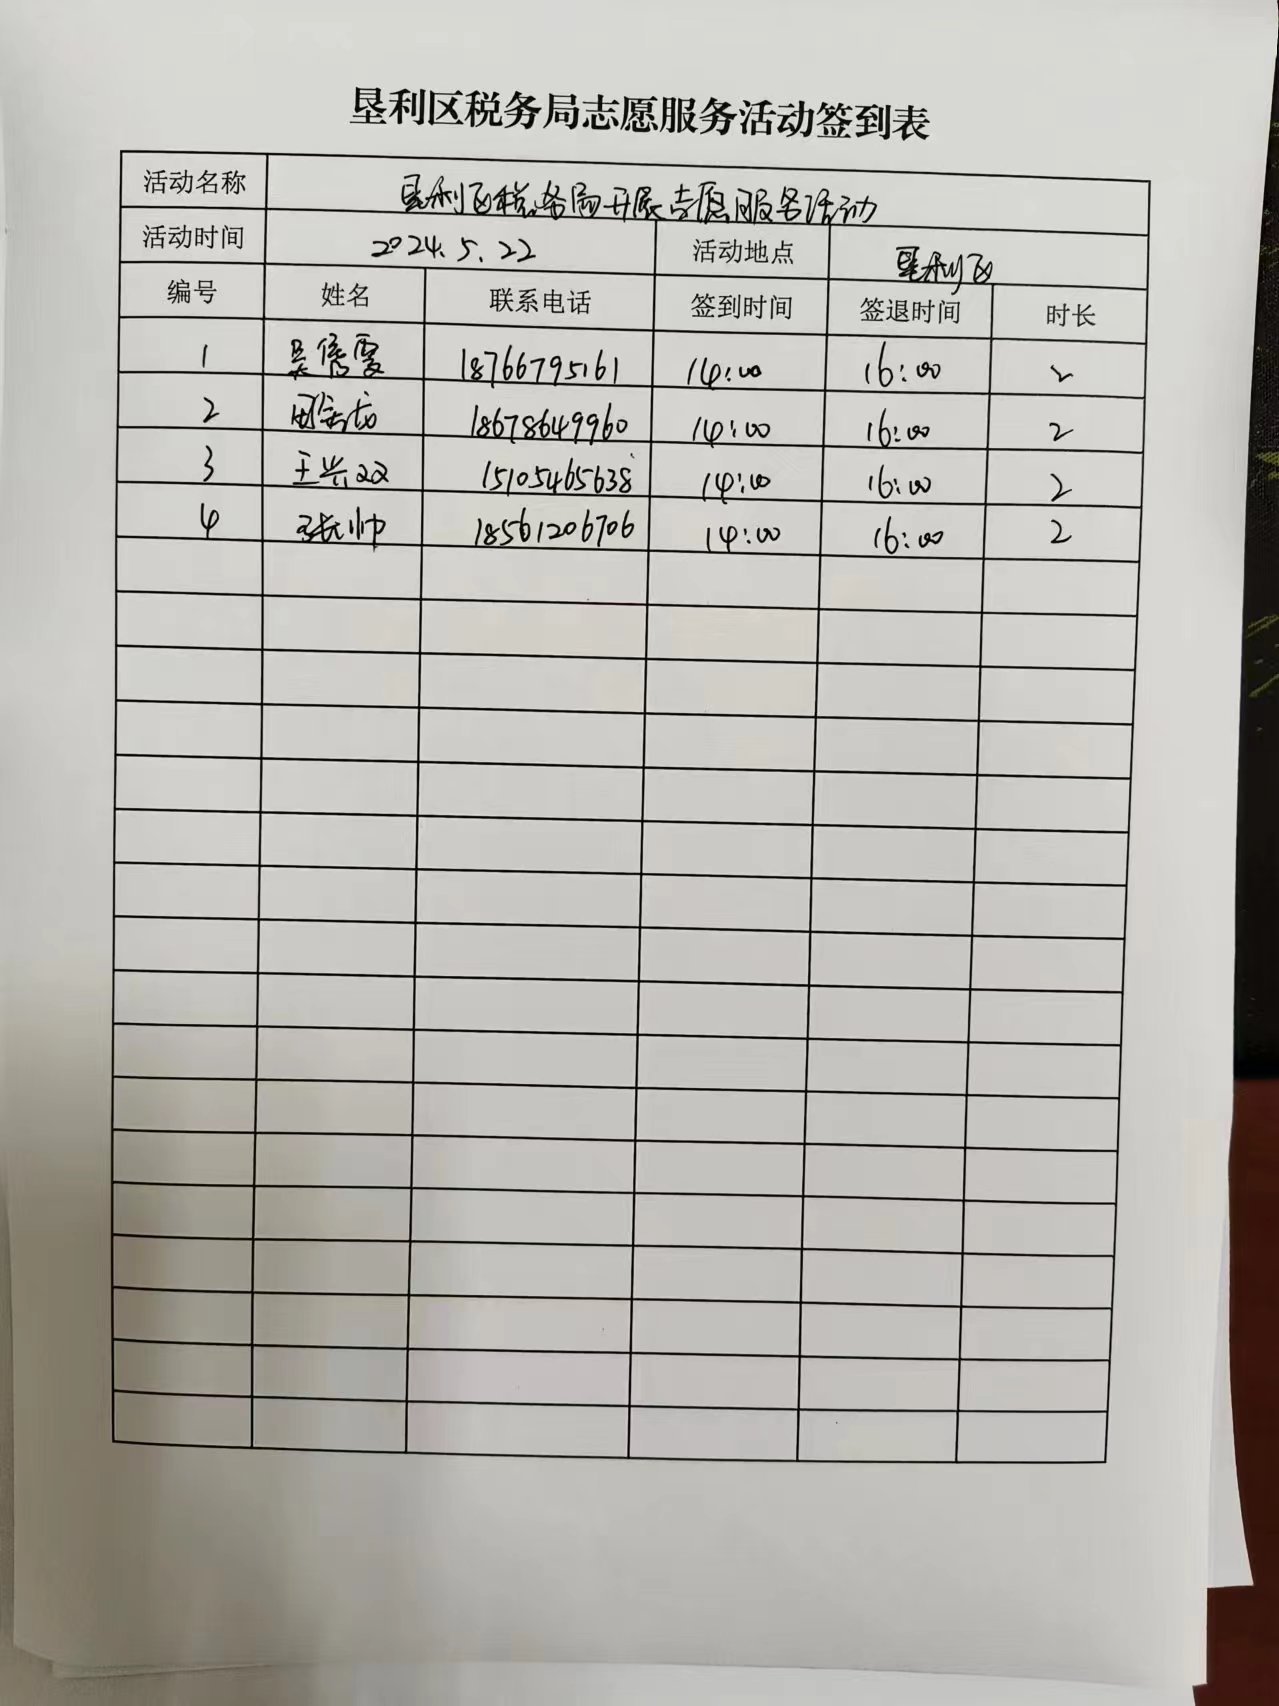 垦利区税务局志愿服务活动签到表
活动名称 垦利区税务局开展志愿服务活动
活动时间 2024.5.22 活动地点 垦利区
编号 姓名 联系电话 签到时间 签退时间 时长
1 吴倩雯 18766795161 14:00 16:00 2
2 18678649960 14:00 16:00 2
3 王兴双 15105465638 14:00 16:00 2
4 张帅 18561206706 14:00 16:00 2